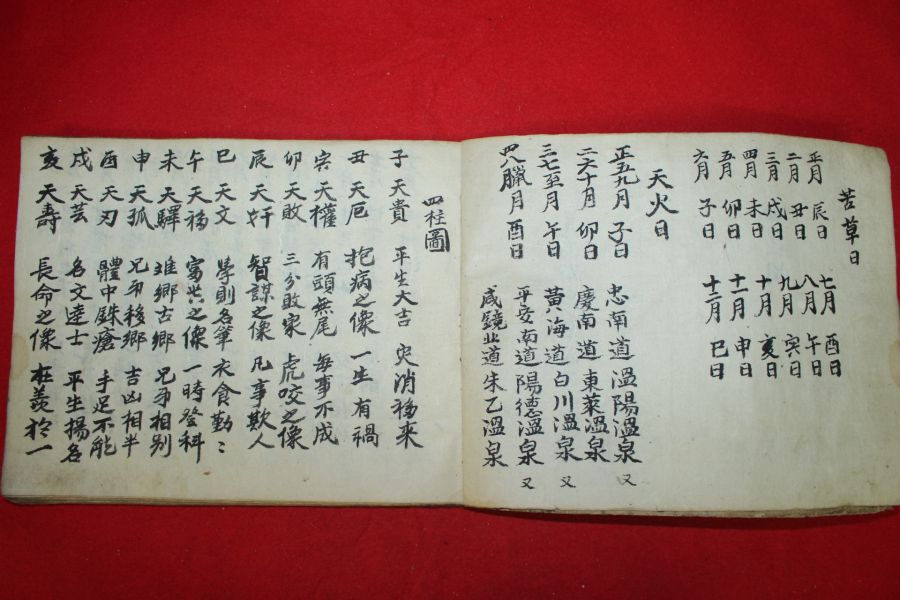 苦草日
正月 辰日 七月 酉日
二月 丑日 八月 午日
三月 戌日 九月 寅日
四月 未日 十月 亥日
五月 卯日 十一月 申日
六月 子日 十二月 巳日
天火日
正五九月 子日 忠南道 溫陽溫泉 又
二六十月 卯日 慶南道 東萊溫泉
三七至月 午日 黃海道 白川溫泉 又
四八臘月 酉日 平安南道陽德溫泉 又
咸鏡北道朱乙溫泉
四柱圖
子 天貴 平生大吉 灾消福来
丑 天厄 抱病之像 一生有禍
寅 天權 有頭無尾 每事不成
卯 天敗 三分敗家 虎咬之像
辰 天奸 智謀之像 凡事欺人
巳 天文 學則名筆 衣食勤々
午 天福 富貴之像 一時登科
未 天驛 離鄉去鄉 兄弟相別
申 天孤 兄弟移鄉 吉凶相半
酉 天刃 體中銖瘡 手足不能
戌 天芸 名文達士 平生揚名
亥 天壽 長命之像 在義於一